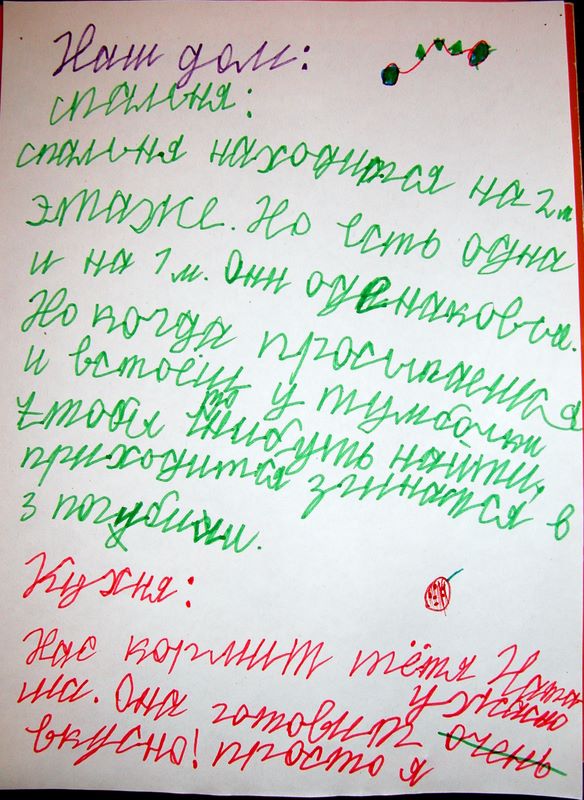 Наш дом:
спальня:
спальня находится на 2 м
этаже. Но есть одна
и на 1 м. Они оденаковы.
Но когда просыпаешься
и встоёш у тумбочки
чтобы што нибуть найти,
приходится згинатся в
3 погубили.
Кухня:
Нас кормит тётя Ната
ша. Она готовит ужасно
очень
вкусно! просто я